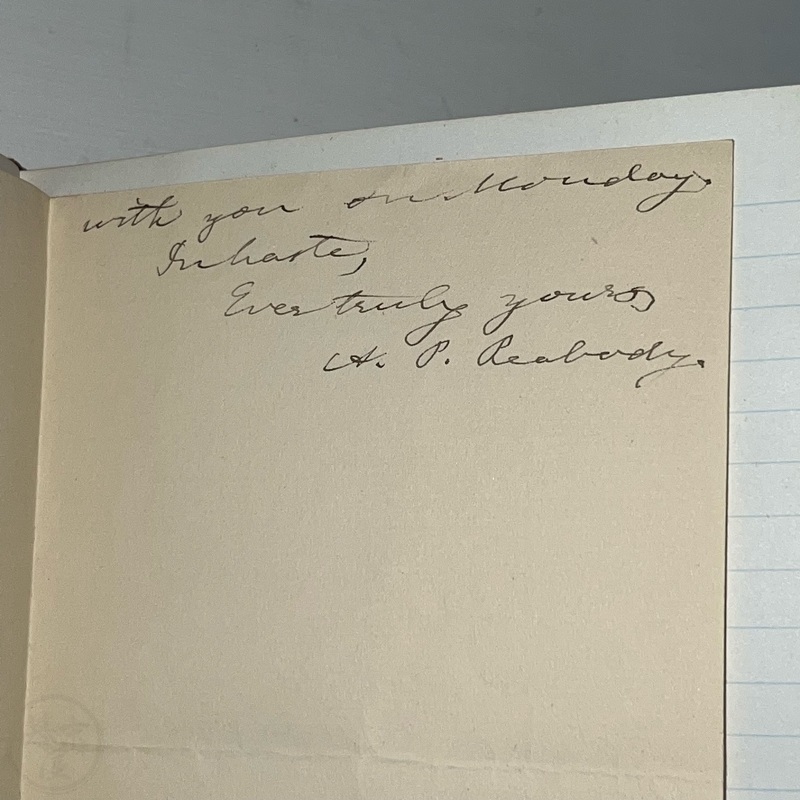 with you on Monday.
In haste,
Ever truly yours,
A. P. Peabody.